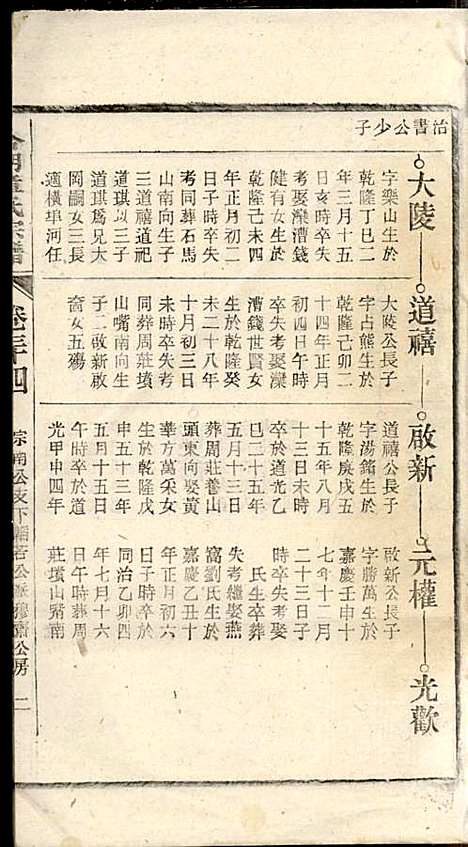 治書公少子
大陵
道禧
啟新
元權
光歡
字樂山生於
乾隆丁巳二
年三月十五
日亥時卒失
考娶濼漕錢
健有女生於
乾隆己未四
年正月初二
日子時卒失
考同葬石馬
山南向生子
三道禧道祀
道琪以三子
道琪爲兄大
岡嗣女三長
適橫埠河任
大陵公長子
字占熊生於
乾隆己卯二
十四年正月
初四日午時
卒失考娶濼
漕錢世賢女
生於乾隆癸
未二十八年
十月初三日
未時卒失考
同葬周莊墳
山嘴南向生
子二啟新啟
喬女五殤
道禧公長子
字湯銘生於
乾隆庚戌五
十五年八月
十三日未時
卒於道光乙
巳二十五年
五月十三日
葬周莊譽山
頭東向娶黃
華方萬采女
生於乾隆戊
申五十三年
五月十五日
午時卒於道
光甲申四年
啟新公長子
字勝萬生於
嘉慶壬申十
七年十二月
二十三日子
時卒失考娶
氏生卒葬
失考繼娶燕
窩劉氏生於
嘉慶乙丑十
年正月初六
日子時卒於
同治乙卯四
年七月十六
日午時葬周
莊墳山嘴南
宗譜
卷三十四
宗南公支下
公房
二